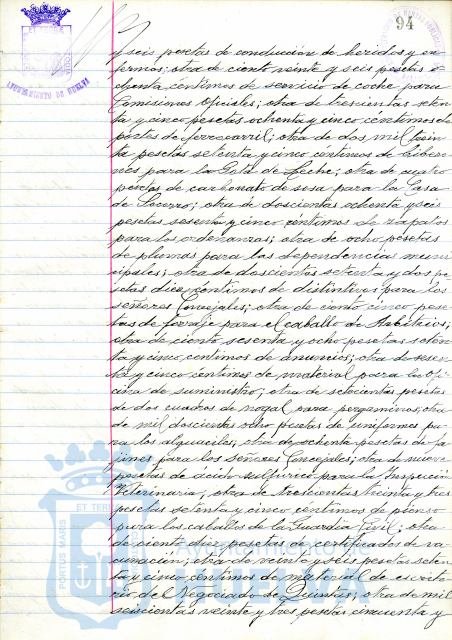 94
AYUNTAMIENTO DE HUELVA
y seis pesetas de conducción de heridos y en
fermos; otra de ciento veinte y seis pesetas o
chenta céntimos de servicio de coche para
Comisiones Oficiales; otra de trescientas seten
ta y cinco pesetas ochenta y cinco céntimos de
portes de ferrocarril; otra de dos mil trein
ta pesetas setenta y cinco céntimos de bibero
nes para la Gota de Leche; otra de cuatro
pesetas de carbonato de sosa para la Casa
de Socorro; otra de doscientas ochenta y seis
pesetas sesenta y cinco céntimos de zapatos
para los ordenanzas; otra de ocho pesetas
de plumas para las dependencias muni
cipales; otra de doscientas setenta y dos pe
setas diez céntimos de distintivos para los
señores Concejales; otra de ciento cinco pese
tas de forraje para el caballo de Arbitrios;
otra de ciento sesenta y ocho pesetas seten
ta y cinco céntimos de anuncios; otra de sesen
ta y cinco céntimos de material para la Ofi
cina de suministro; otra de setecientas pesetas
de dos cuadros de nogal para pergaminos; otra
de mil doscientas ocho pesetas de uniformes pa
ra los alguaciles; otra de ochenta pesetas de fa
jines para los señores Concejales; otra de nueve
pesetas de ácido sulfúrico para la Inspección
Veterinaria; otra de trescientas treinta y tres
pesetas setenta y cinco céntimos de pienso
para los caballos de la Guardia Civil; otra
de ciento diez pesetas de certificados de va
cunación; otra de veinte y seis pesetas seten
ta y cinco céntimos de material de escrito
rio del Negociado de Quintas; otra de mil
seiscientas veinte y tres pesetas cincuenta y
PORTUS MARIS
ET TERRAE
Ayuntamiento de